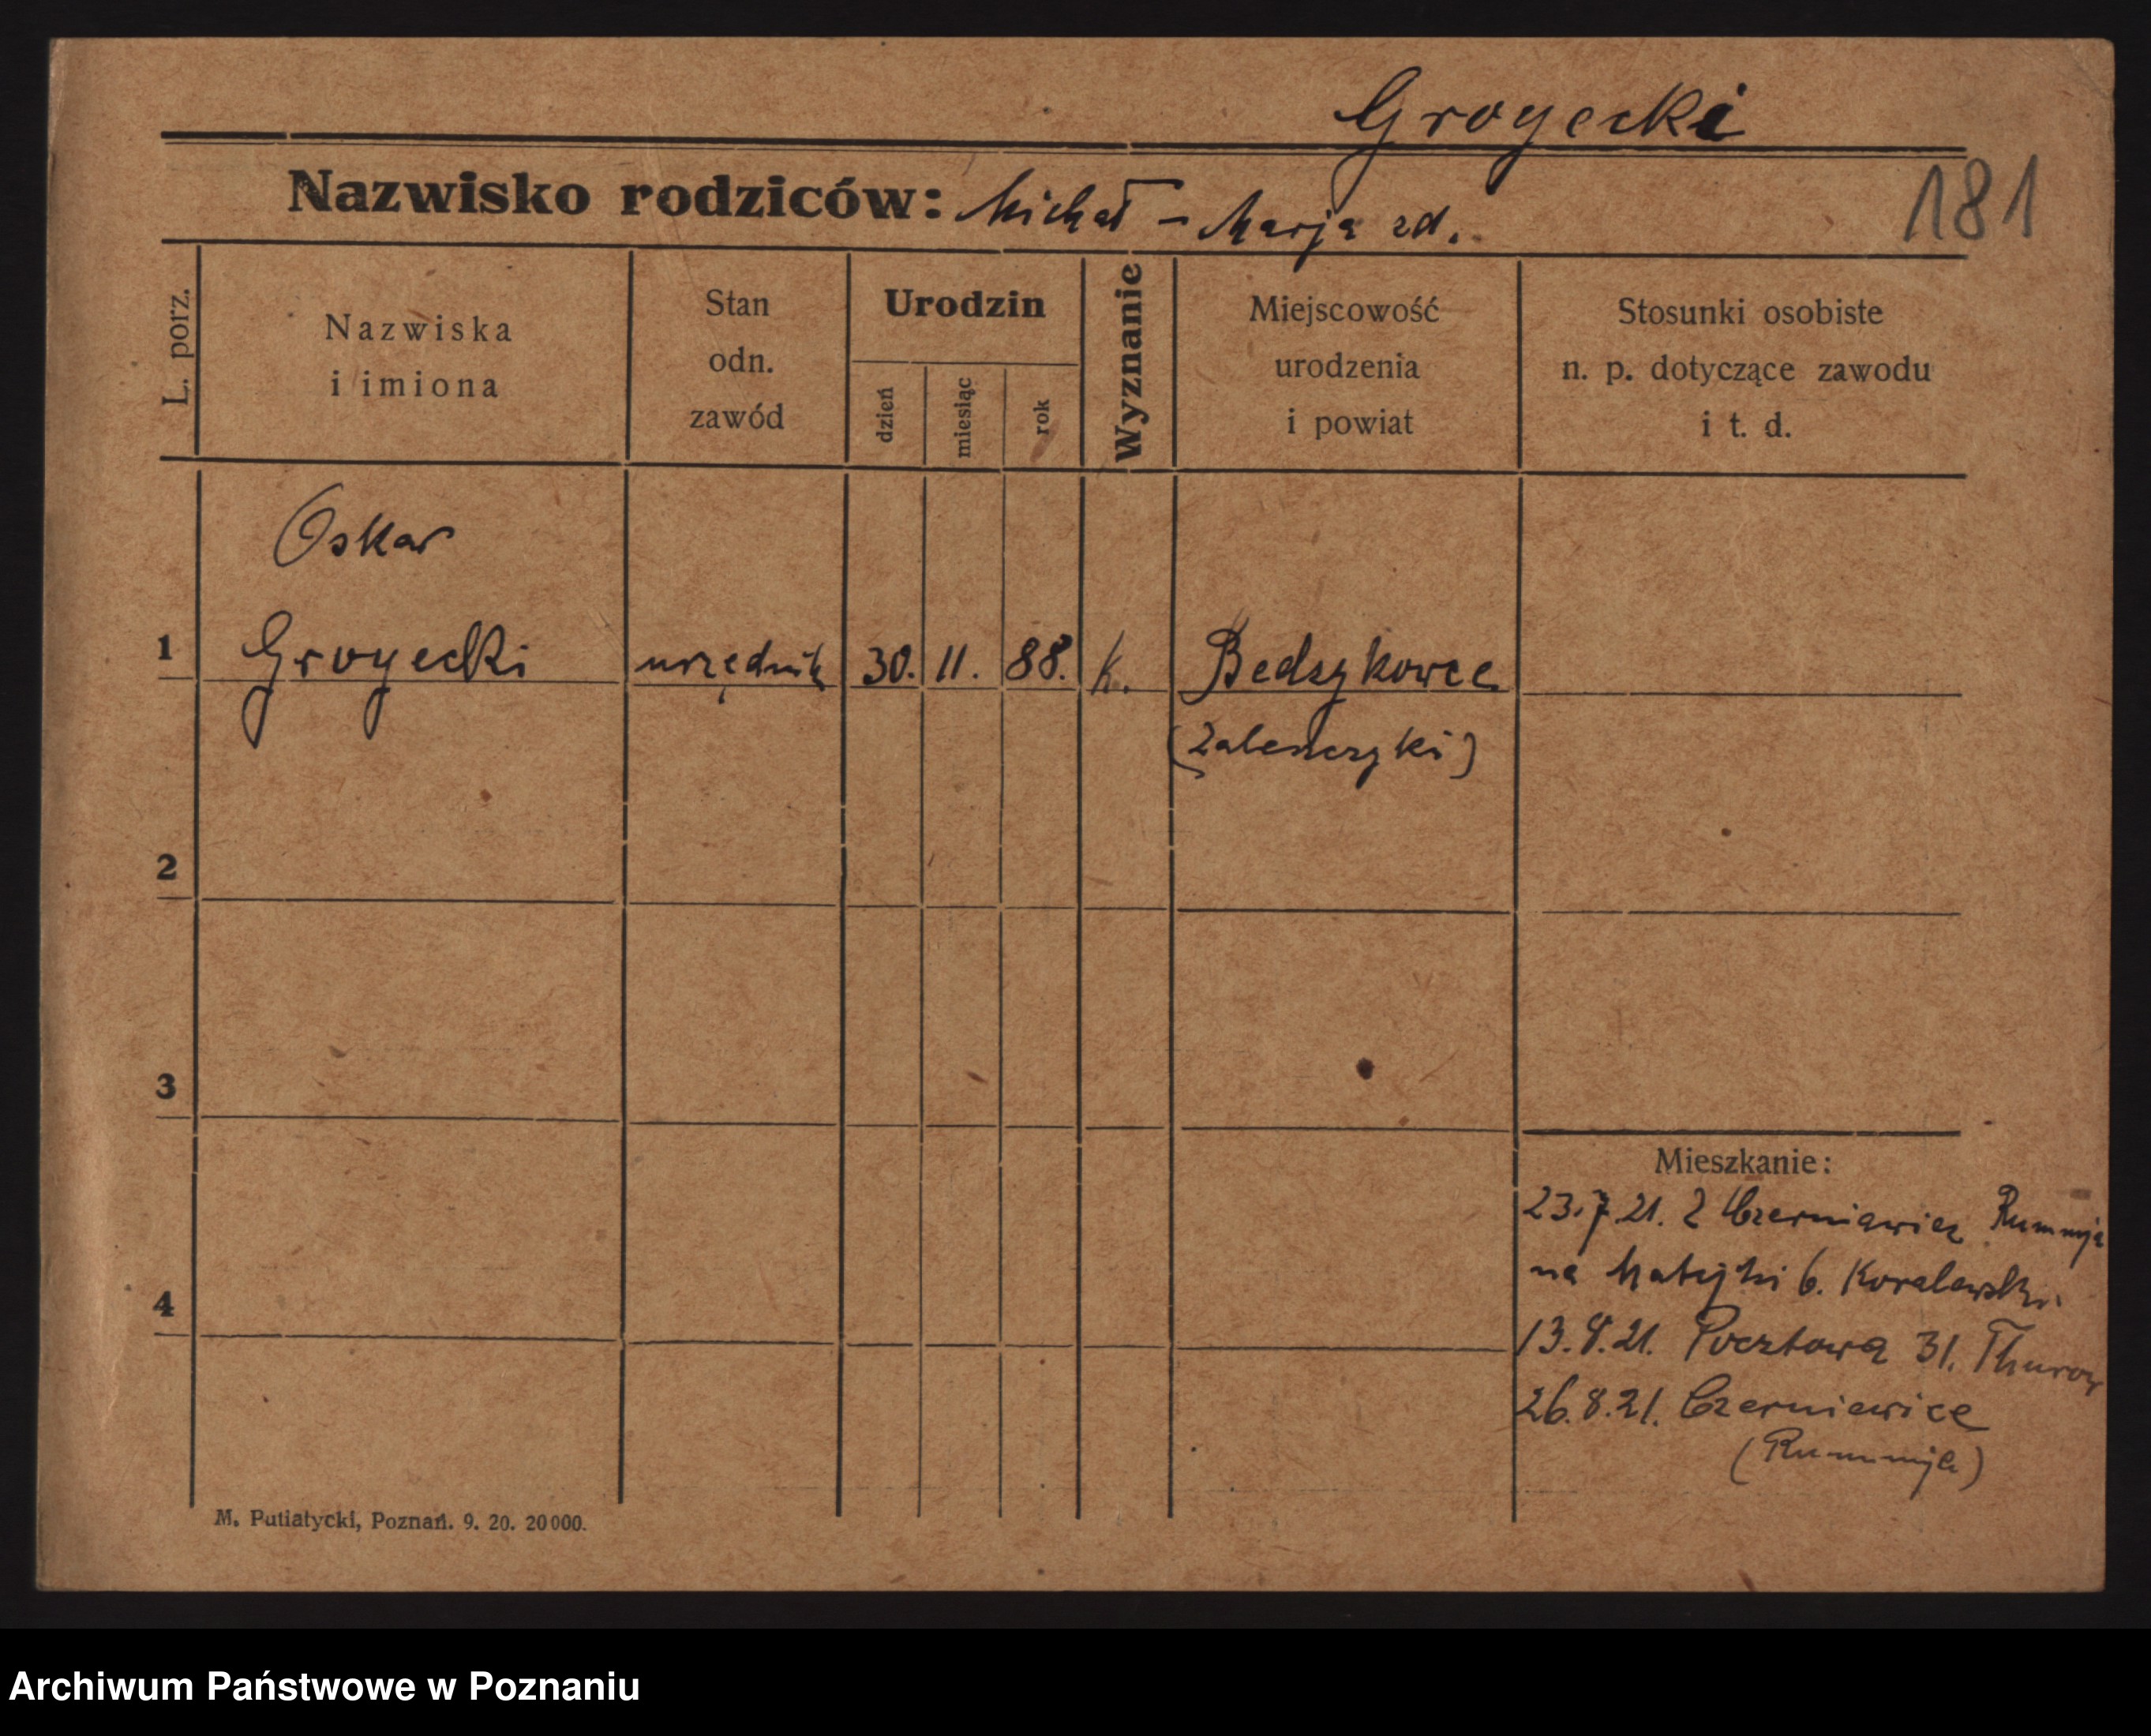 Groyecki
Nazwisko rodziców: Michał – Marja zd.
181
L. porz.
Nazwiska
i imiona
Stan
odn.
zawód
Urodzin
dzień
miesiąc
rok
Wyznanie
Miejscowość
urodzenia
i powiat
Stosunki osobiste
n. p. dotyczące zawodu
i t. d.
Oskar
1 Groyecki urzędnik 30. 11. 88. k. Bedzykowce
(Zaleszczyki)
2
3
Mieszkanie:
23.7.21. Z Czerniawicz
na Matejki 6. Koralewski
4
13.8.21. Pocztowa 31.
26.8.21. Czerniewice
M. Putiatycki, Poznań. 9. 20. 20000.
Archiwum Państwowe w Poznaniu